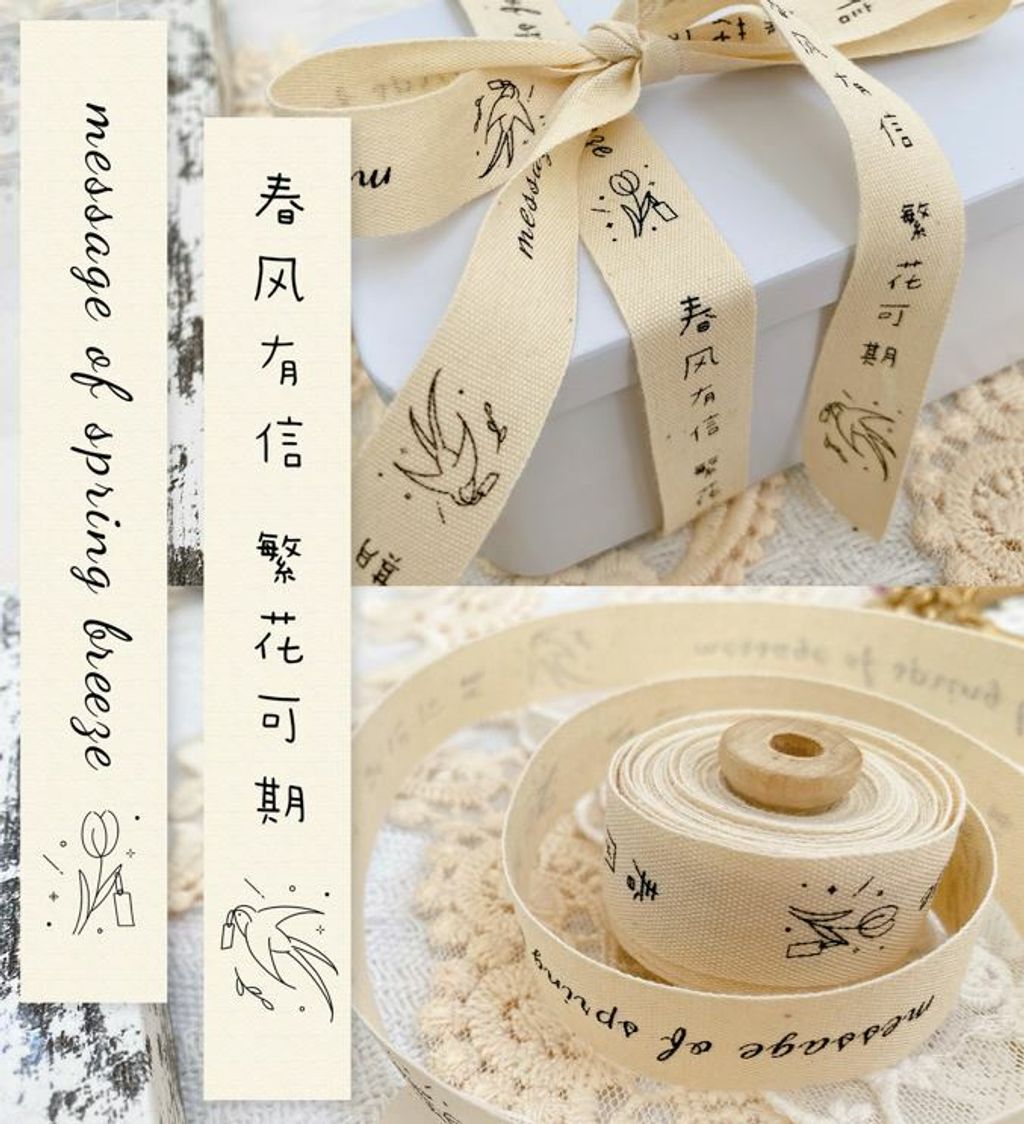 message of spring breeze
春风有信 繁花可期
message
春风有信 繁花
信 繁花可期
message of spring